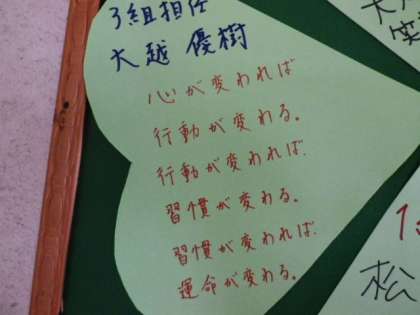 3組担任
大越 優樹
心が変われば
行動が変わる。
行動が変われば、
習慣が変わる。
習慣が変われば、
運命が変わる。
松